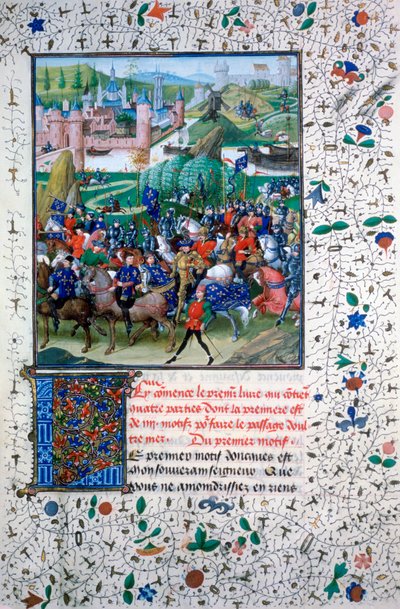 Cy cōmence le premͬ liure qui cōtiēt
quatre parties dont la premiere est
de iiijͬ motifz pͦ faire le passage doul
tre mer. Du premier motif
E premier motif doncques est
mon souuerain seigneur Que
vous ne amondrissiez en riens